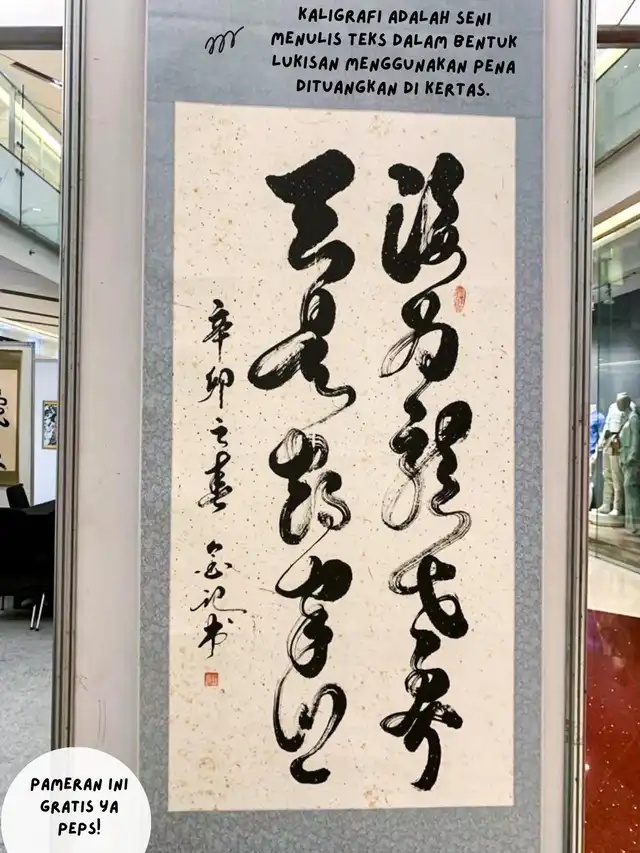 KALIGRAFI ADALAH SENI
MENULIS TEKS DALAM BENTUK
LUKISAN MENGGUNAKAN PENA
DITUANGKAN DI KERTAS.
海为龍世界
天是鹤家鄉
辛卯之春 金记书
PAMERAN INI
GRATIS YA
PEPS!